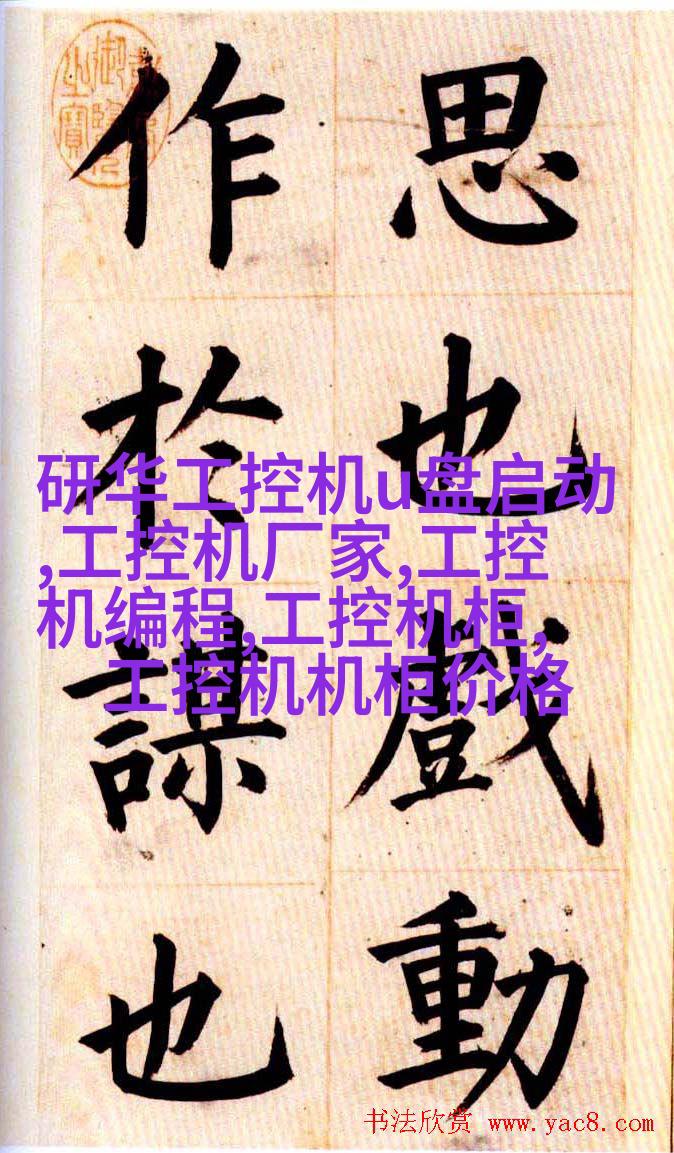 思也戲動
作於謀也
研华工控机u盘启动
,工控机厂家,工控
机编程,工控机柜,
工控机机柜价格
书法欣赏 www.yac8.com